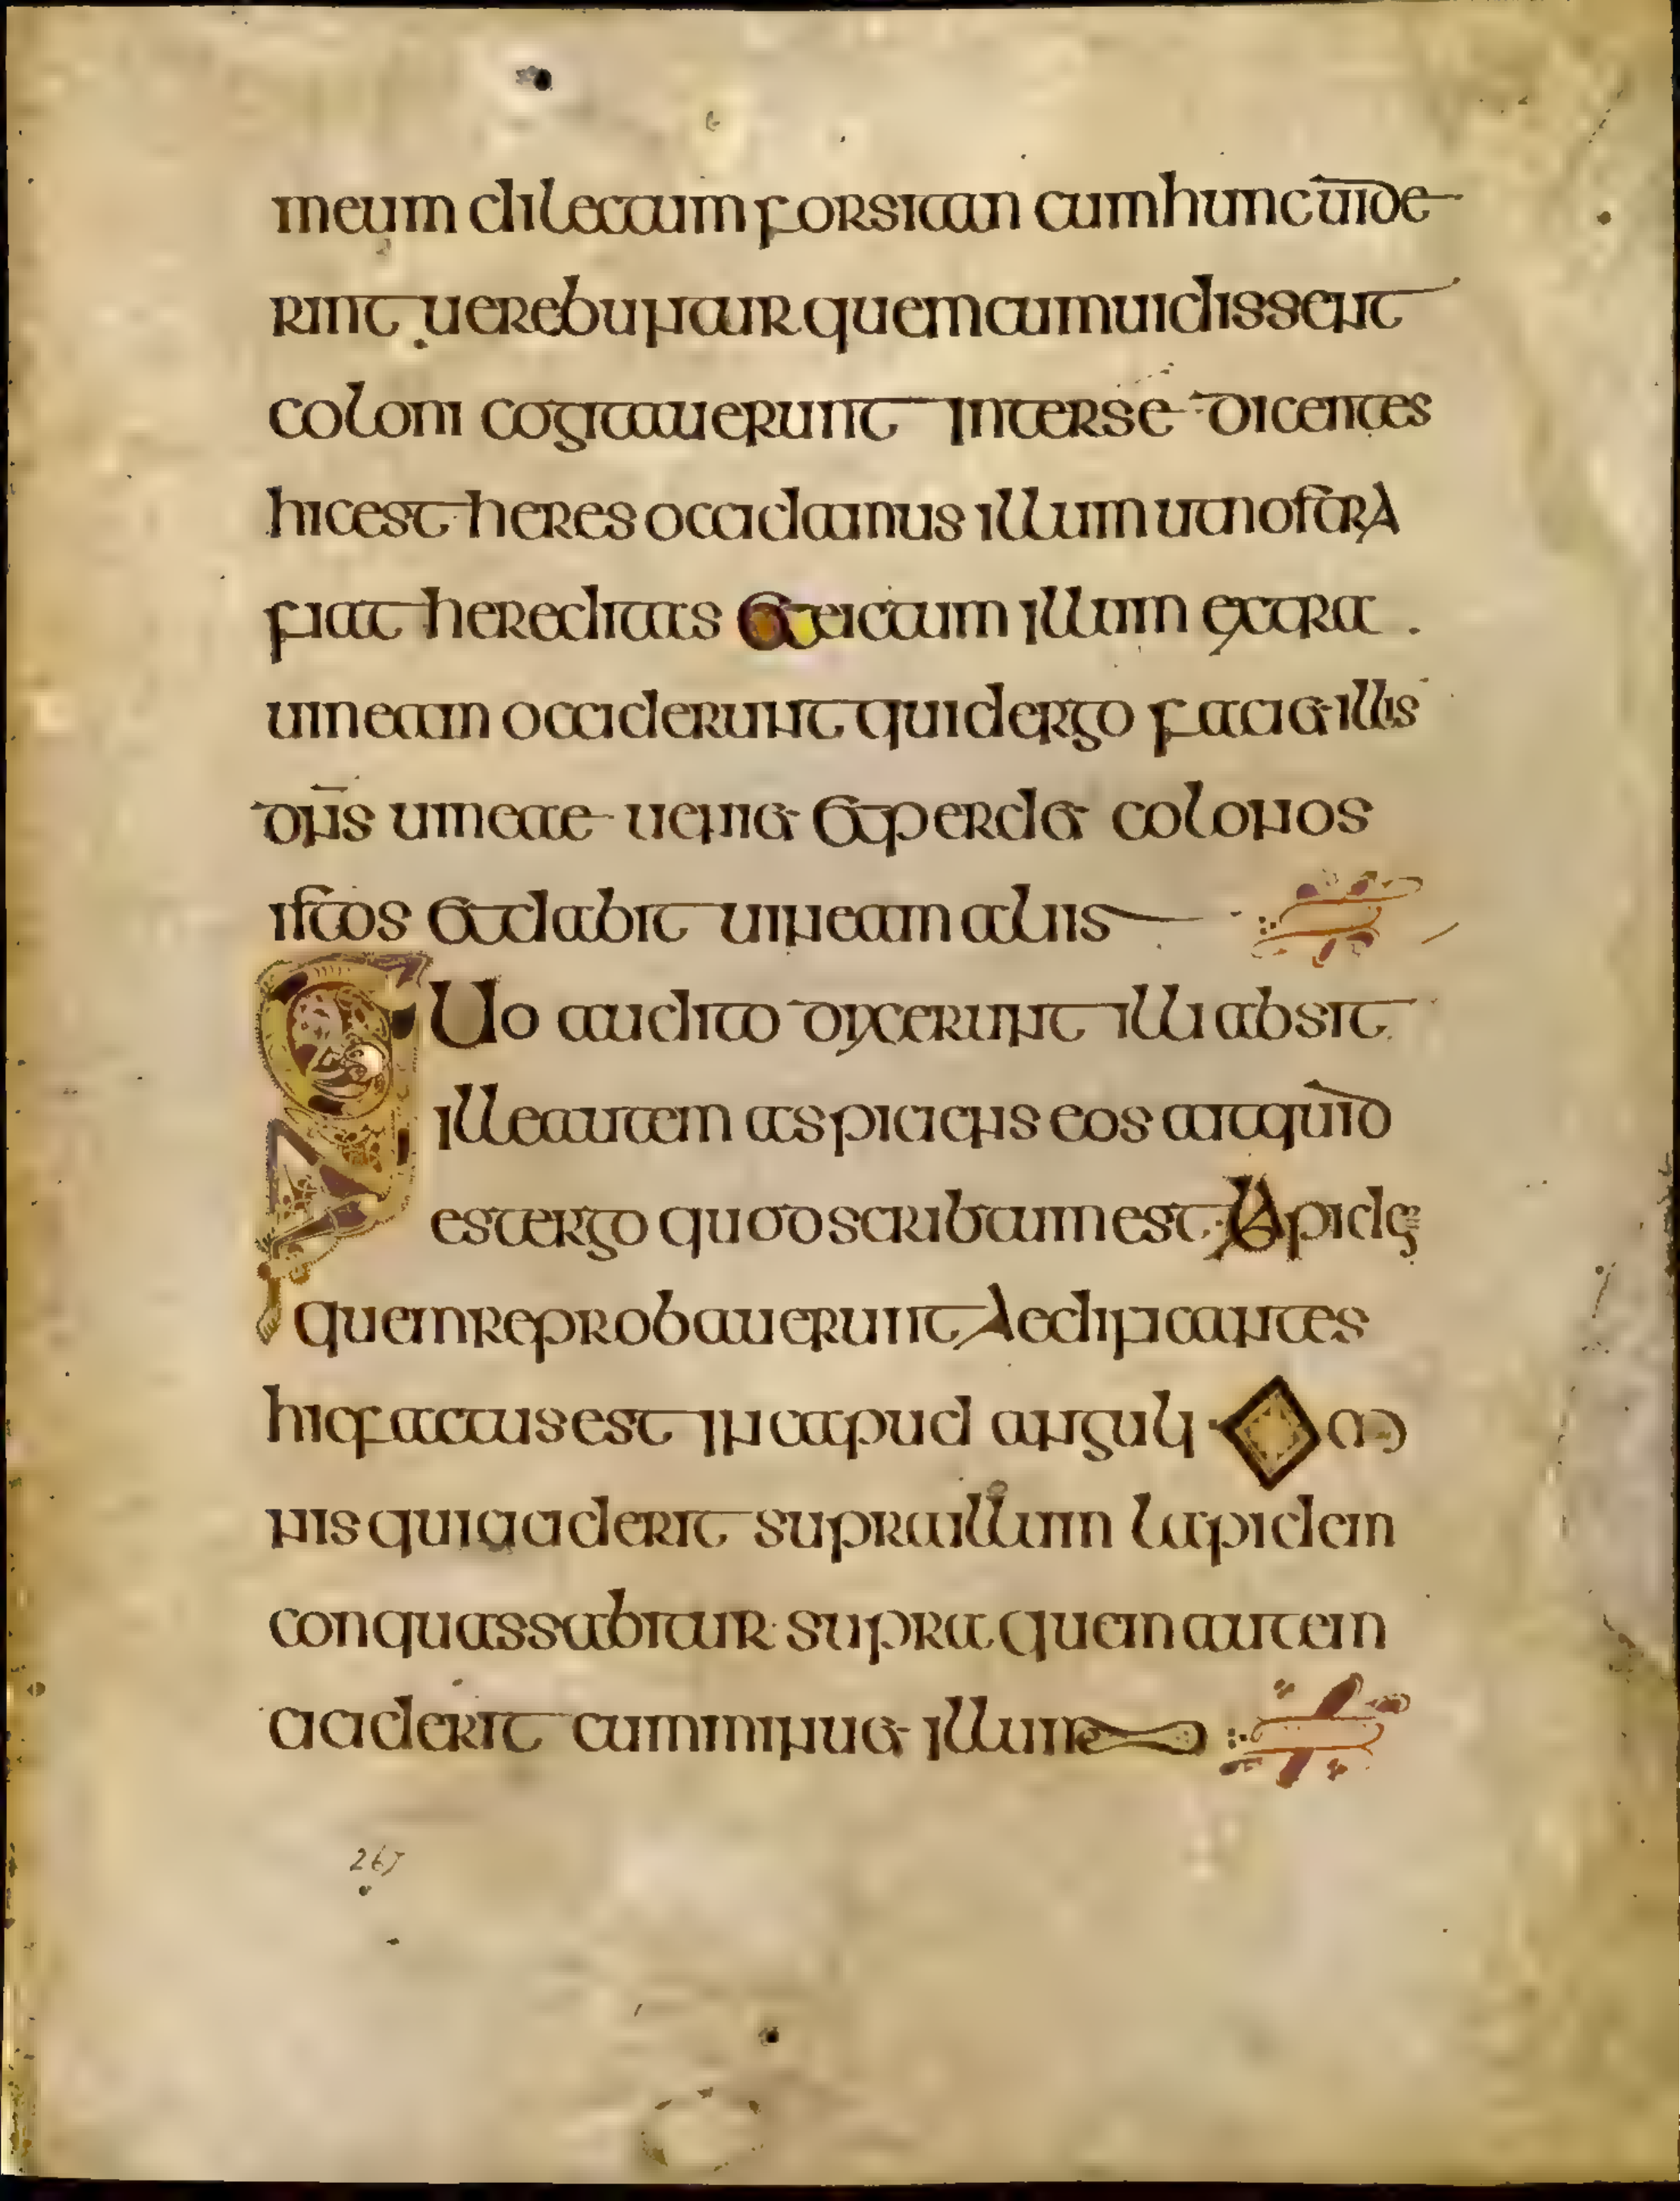 meum dilectum forsitan cum hunc uide
rint uerebuntur quem cum uidissent
coloni cogitauerunt inter se dicentes
hic est heres occidamus illum ut nostra
fiat hereditas et eictum illum extra
uineam occiderunt quid ergo faciet illis
dn̄s uineae ueniet et perdet colonos
istos et dabit uineam aliis
Quo audito dixerunt illi absit
ille autem aspiciens eos ait quid
est ergo quod scribtum est lapidem
quem reprobauerunt aedificantes
hic factus est in caput anguli om
nis qui ciciderit supra illum lapidem
conquassabitur supra quem autem
ciciderit cumminuet illum
267